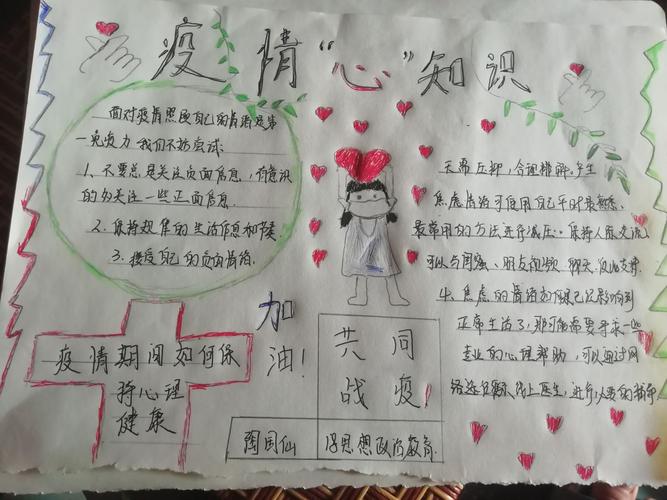 疫情“心”知识
面对疫情照顾自己的情绪是第
一免疫力 我们不妨尝试:
1、不要总是关注负面信息,有意识
的多关注一些正面信息.
2、保持规律的生活作息和
3、接受自己的负面情绪.
疫情期间如何保
持心理
健康
加
油!
共同
战疫!
思想政治教育
无需压抑,合理排解.产生
焦虑情绪可使用自己平时最熟悉、
最常用的方法进行减压:保持人际交流
可以与同学、朋友视频 聊天.彼此支持.
4、焦虑的情绪如果已经影响到
正常生活了,那可能需要寻求一些
专业的心理帮助,可以通过网
线上医生,进行